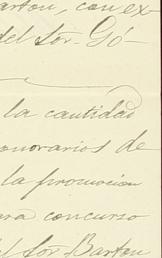 Barton, con ex-
del Sor. Gó-
la cantidad
onorarios de
la promocion
ara concurso
del Sor Barton